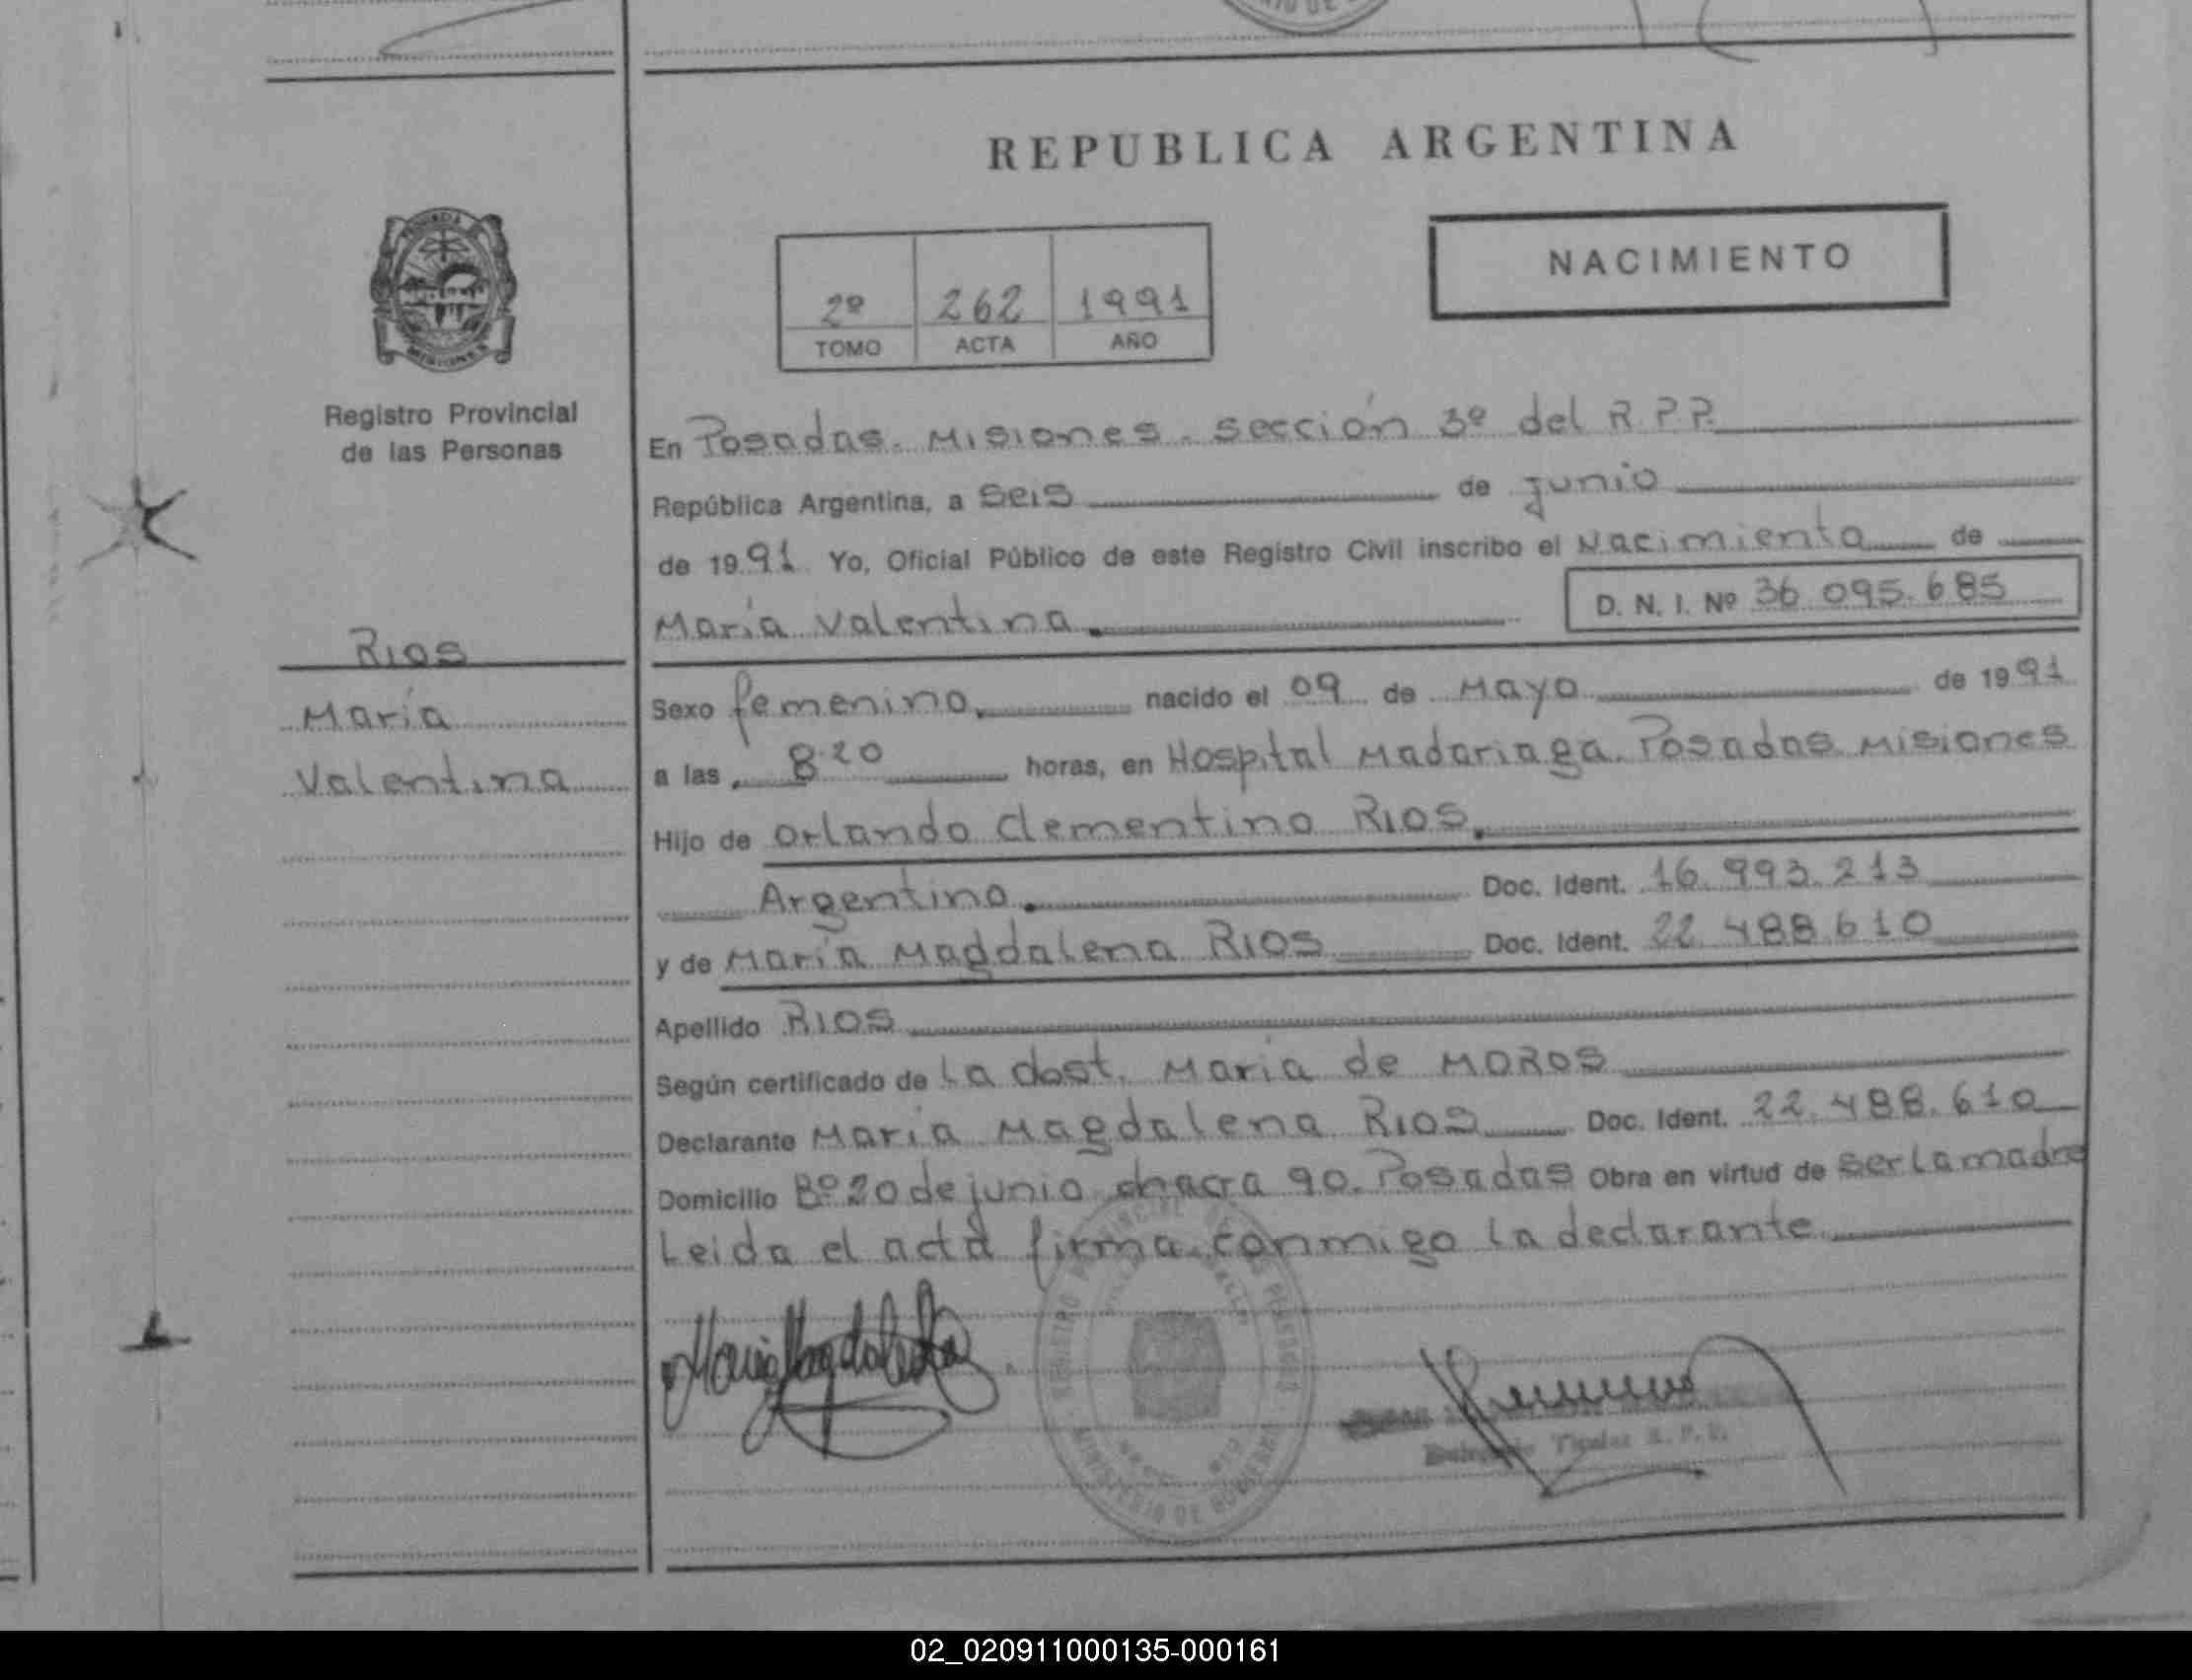 REPUBLICA ARGENTINA
NACIMIENTO
2º 262 1991
TOMO ACTA AÑO
Registro Provincial
de las Personas
En Posadas. Misiones. sección 3º del R.P.P.
República Argentina, a seis de junio
de 1991 Yo, Oficial Público de este Registro Civil inscribo el Nacimiento de
María Valentina. D. N. I. Nº 36 095.685
Rios
María
Valentina
Sexo femenino. nacido el 09 de Mayo de 1991
a las 8.20 horas, en Hospital Madariaga. Posadas Misiones
Hijo de Orlando Clementino RIOS.
Argentino. Doc. Ident. 16.993.213
y de María Magddalena RIOS Doc. Ident. 22 488.610
Apellido RIOS
Según certificado de La dost. María de MOROS
Declarante María Magdalena RIOS Doc. Ident. 22.488.610
Domicilio Bº 20 de junio chacra 90. Posadas Obra en virtud de ser la madre
Leida el acta firma conmigo la declarante
02_020911000135-000161